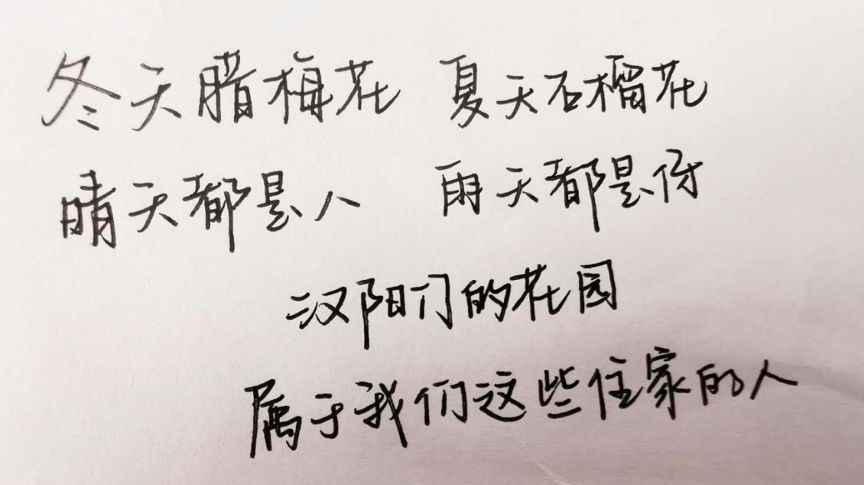 冬天腊梅花 夏天石榴花
晴天都是人 雨天都是伢
汉阳门的花园
属于我们这些住家的人